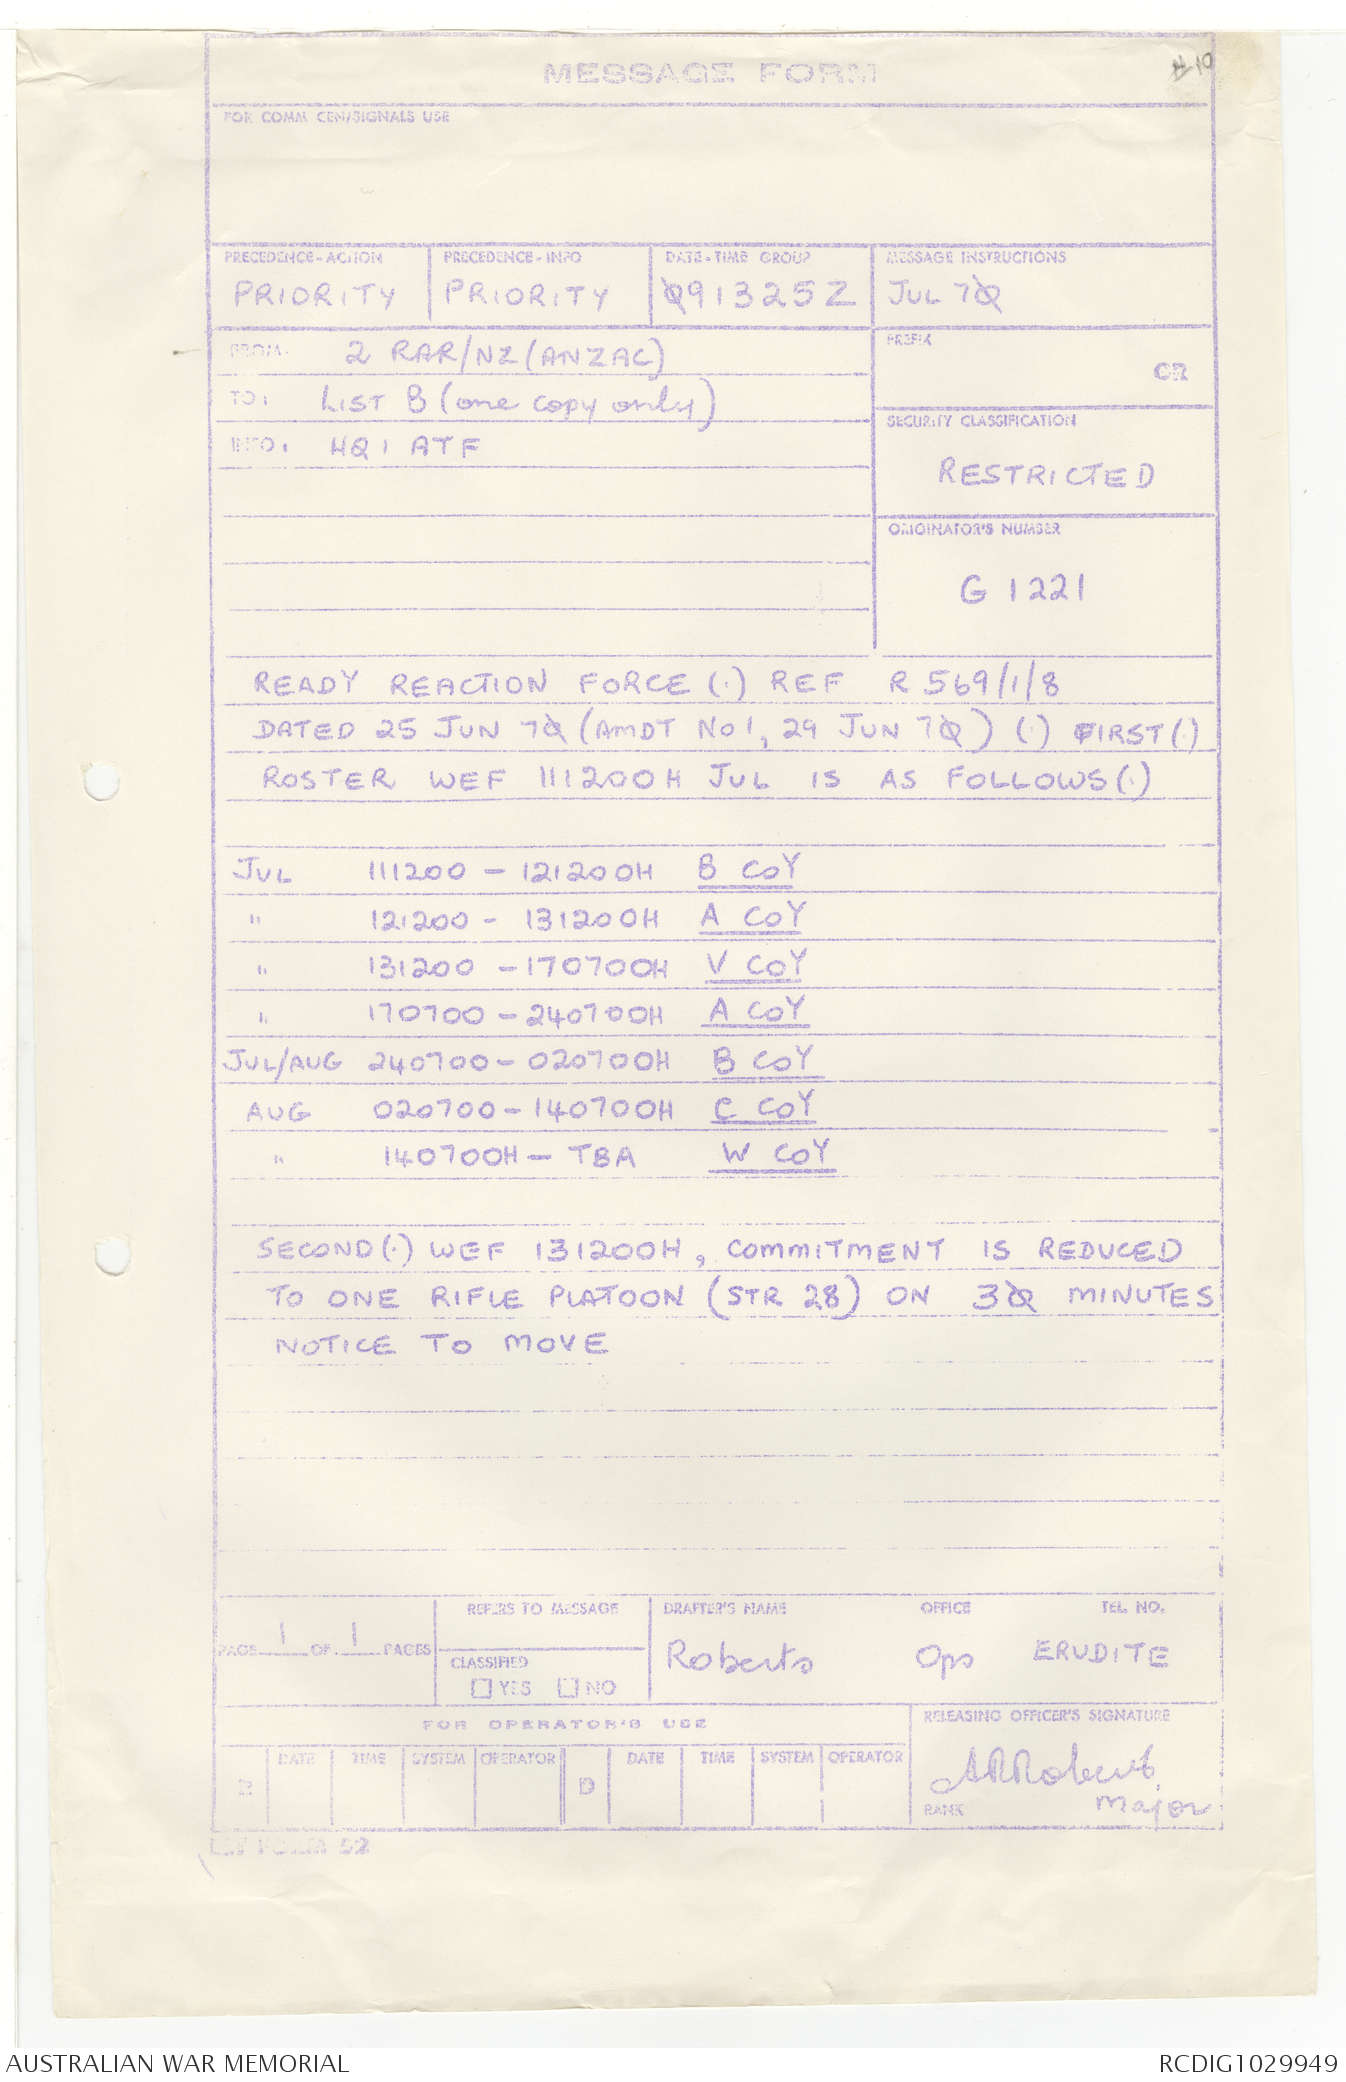 MESSAGE FORM
FOR COMM CEN/SIGNALS USE
PRECEDENCE-ACTION PRECEDENCE-INFO DATE-TIME GROUP MESSAGE INSTRUCTIONS
PRIORITY PRIORITY 091325Z JUL 70
FROM: 2 RAR/NZ (ANZAC)
PREFIX
GR
TO: LIST B (one copy only)
SECURITY CLASSIFICATION
INFO: HQ 1 ATF
RESTRICTED
ORIGINATOR'S NUMBER
G 1221
READY REACTION FORCE (.) REF R 569/1/8
DATED 25 JUN 70 (AMDT No 1, 29 JUN 70) (.) FIRST (.)
ROSTER WEF 111200H JUL IS AS FOLLOWS (.)
JUL 111200 - 121200H B COY
" 121200 - 131200H A COY
" 131200 - 170700H V COY
" 170700 - 240700H A COY
JUL/AUG 240700 - 020700H B COY
AUG 020700 - 140700H C COY
" 140700H - TBA W COY
SECOND (.) WEF 131200H, COMMITMENT IS REDUCED
TO ONE RIFLE PLATOON (STR 28) ON 30 MINUTES
NOTICE TO MOVE
REFERS TO MESSAGE DRAFTER'S NAME OFFICE TEL. NO.
PAGE 1 OF 1 PAGES
Roberts Ops ERUDITE
CLASSIFIED
YES NO
FOR OPERATOR'S USE
RELEASING OFFICER'S SIGNATURE
DATE TIME SYSTEM OPERATOR DATE TIME SYSTEM OPERATOR
R D
ARRoberts
RANK Major
AUSTRALIAN WAR MEMORIAL RCDIG1029949